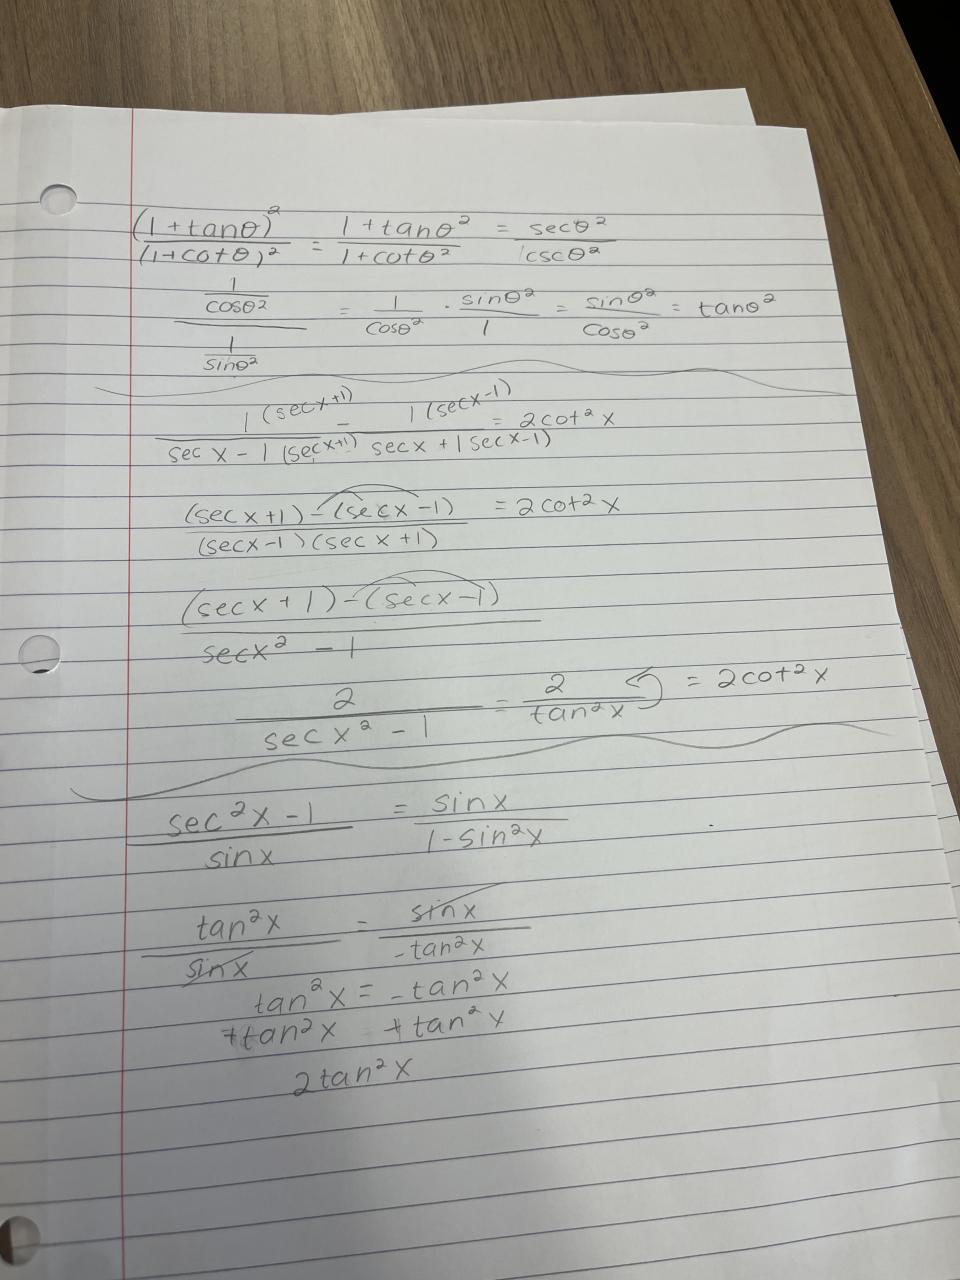 (1+tanθ)²/(1+cotθ)² = 1+tanθ²/1+cotθ² = secθ²/cscθ²
1/cosθ² / 1/sinθ² = 1/cosθ² · sinθ²/1 = sinθ²/cosθ² = tanθ²
1(secx+1)/secx-1(secx+1) - 1(secx-1)/secx+1(secx-1) = 2cot²x
(secx+1)-(secx-1)/(secx-1)(secx+1) = 2cot²x
(secx+1)-(secx-1)/secx²-1
2/secx²-1 = 2/tan²x = 2cot²x
sec²x-1/sinx = sinx/1-sin²x
tan²x/sinx = sinx/-tan²x
tan²x = -tan²x
+tan²x +tan²x
2tan²x